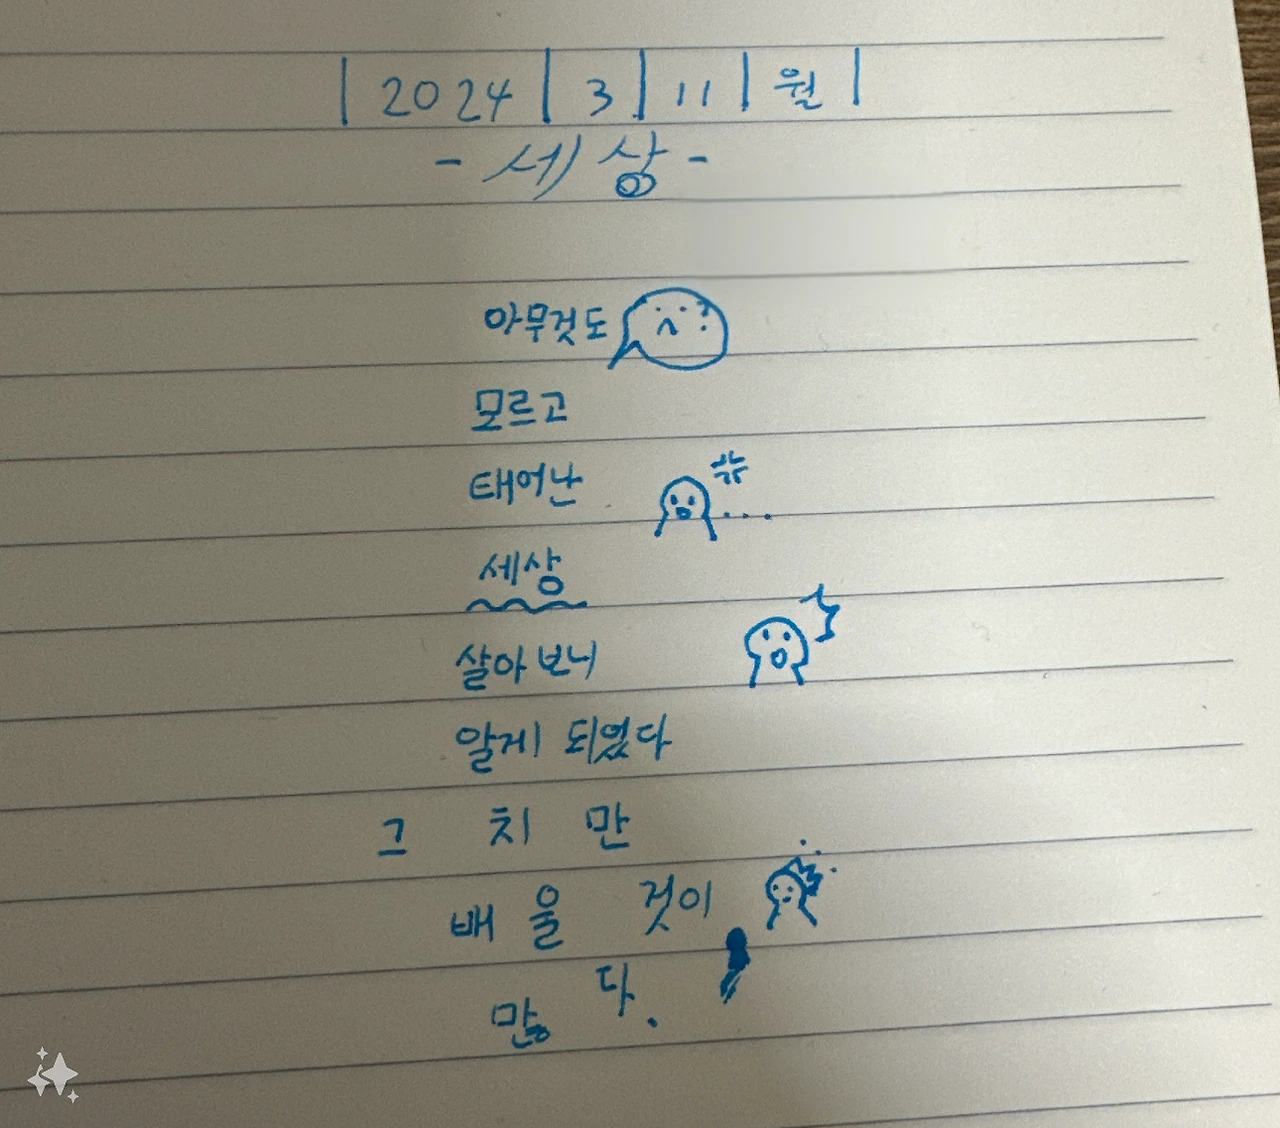 | 2024 | 3 | 11 | 월 |
- 세상 -
아무것도 ?
모르고
태어난 ...
세상
살아보니
알게 되었다
그 치 만
배 울 것이
많 다.